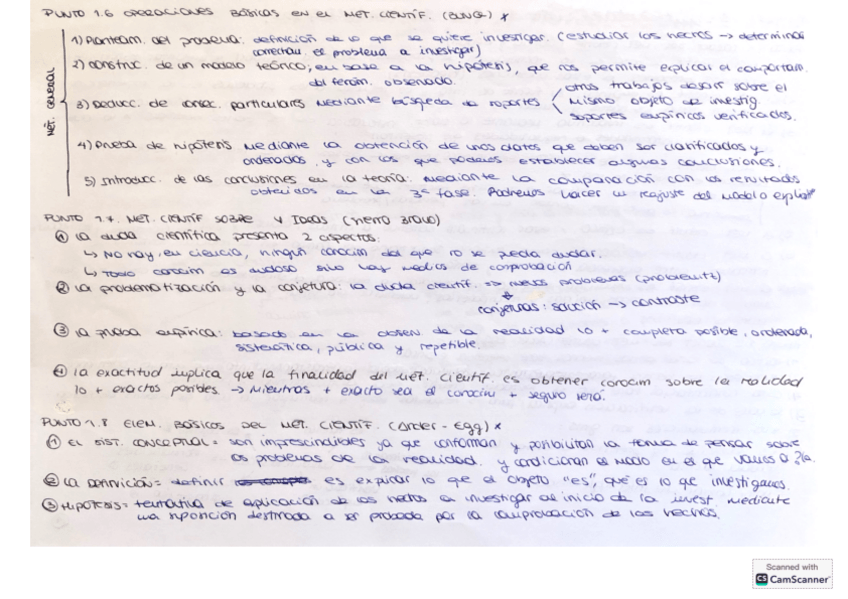 PUNTO 1.6 OPERACIONES BÁSICAS EN EL MET. CIENTIF. (BUNGE) *
MÉT. GENERAL
1) Planteam. del problema: definición de lo que se quiere investigar. (estudiar los hechos → determinar
correctam. el problema a investigar)
2) construc. de un modelo teórico; en base a la hipótesis, que nos permite explicar el comportam.
del feróm. observado.
3) Deducc. de consec. particulares mediante búsqueda de soportes
otros trabajos desarr sobre el
mismo objeto de investig.
soportes empíricos verificados.
4) Prueba de hipótesis mediante la obtención de unos datos que deben ser clarificados y
ordenados, y con los que podemos establecer algunas conclusiones.
5) Introducc. de las conclusiones en la teoría: mediante la comparación con los resultados
obtenidos en la 3ª fase. Podremos hacer un reajuste del modelo explicat
PUNTO 1.7. MET. CIENTÍF SOBRE 4 IDEAS (SIERRA BRAVO)
① La duda científica presenta 2 aspectos:
↳ No hay, en ciencia, ningún conocim del que no se pueda dudar.
↳ Todo conocim es dudoso si no hay medios de comprobación
② La problematización y la conjetura: la duda científ. ⇒ nuevos problemas (problematiz)
conjeturas: solución → contraste
③ La prueba empírica: basado en la observ de la realidad lo + completa posible, ordenada,
sistemática, pública y repetible.
④ La exactitud implica que la finalidad del mét. científ. es obtener conocim sobre la realidad
lo + exactos posibles → mientras + exacto sea el conocim + seguro será.
PUNTO 1.8 ELEM. BÁSICOS DEL MET. CIENTÍF. (Ander-Egg) *
① EL SIST. CONCEPTUAL = son imprescindibles ya que conforman y posibilitan la forma de pensar sobre
los problemas de la realidad. y condicionan el modo en el que vamos a
② LA DEFINICIÓN = definir es explicar lo que el objeto "es", qué es lo que investigamos.
③ HIPÓTESIS = tentativa de aplicación de los hechos a investigar al inicio de la invest. mediante
una suposición destinada a ser probada por la comprobación de los hechos.
Scanned with
CS CamScanner